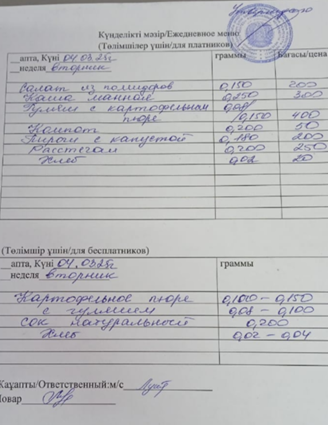 Күнделікті мәзір/Ежедневное меню
(Төлімшілер үшін/для платников)
апта, Күні 04.03.25г граммы Бағасы/цена
неделя вторник
Салат из помидоров 0,150 200
Каша манная 0,250 300
Гуляш с картофельным 0,08/
пюре /0,150 400
Компот 0,200 50
Пироги с капустой 0,180 200
Расстегаи 0,200 250
Хлеб 0,02 20
(Төлімшір үшін/для бесплатников)
апта, Күні 04.03.25г граммы
неделя вторник
Картофельное пюре 0,100 – 0,150
с гуляшем 0,08 – 0,100
сок натуральный 0,200
Хлеб 0,02 – 0,04
Жауапты/Ответственный:м/с
Повар